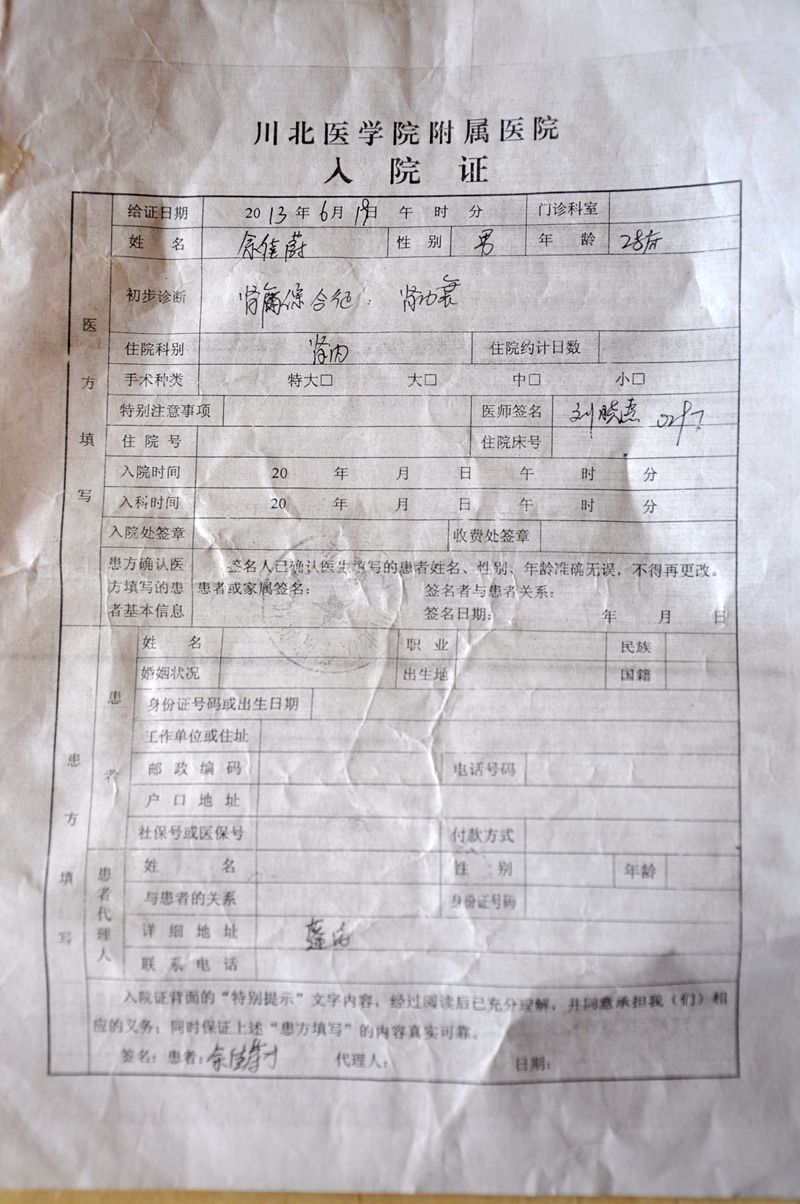 川北医学院附属医院
入院证
医方填写
给证日期 2013年6月19日 午 时 分 门诊科室
姓名 余佳蔚 性别 男 年龄 28岁
初步诊断 肾病综合征: 肾功衰
住院科别 肾内 住院约计日数
手术种类 特大□ 大□ 中□ 小□
特别注意事项 医师签名 刘
住院号 住院床号
入院时间 20 年 月 日 午 时 分
入科时间 20 年 月 日 午 时 分
入院处签章 收费处签章
患方确认医 签名人已确认医生填写的患者姓名、性别、年龄准确无误,不得再更改。
方填写的患 患者或家属签名: 签名者与患者关系:
者基本信息 签名日期: 年 月 日
患方填写
患者
姓名 职业 民族
婚姻状况 出生地 国籍
身份证号码或出生日期
工作单位或住址
邮政编码 电话号码
户口地址
社保号或医保号 付款方式
患者代理人
姓名 性别 年龄
与患者的关系 身份证号码
详细地址
联系电话
入院证背面的“特别提示”文字内容,经过阅读后已充分理解,并同意承担我(们)相
应的义务;同时保证上述“患方填写”的内容真实可靠。
签名:患者:余佳蔚 代理人: 日期: